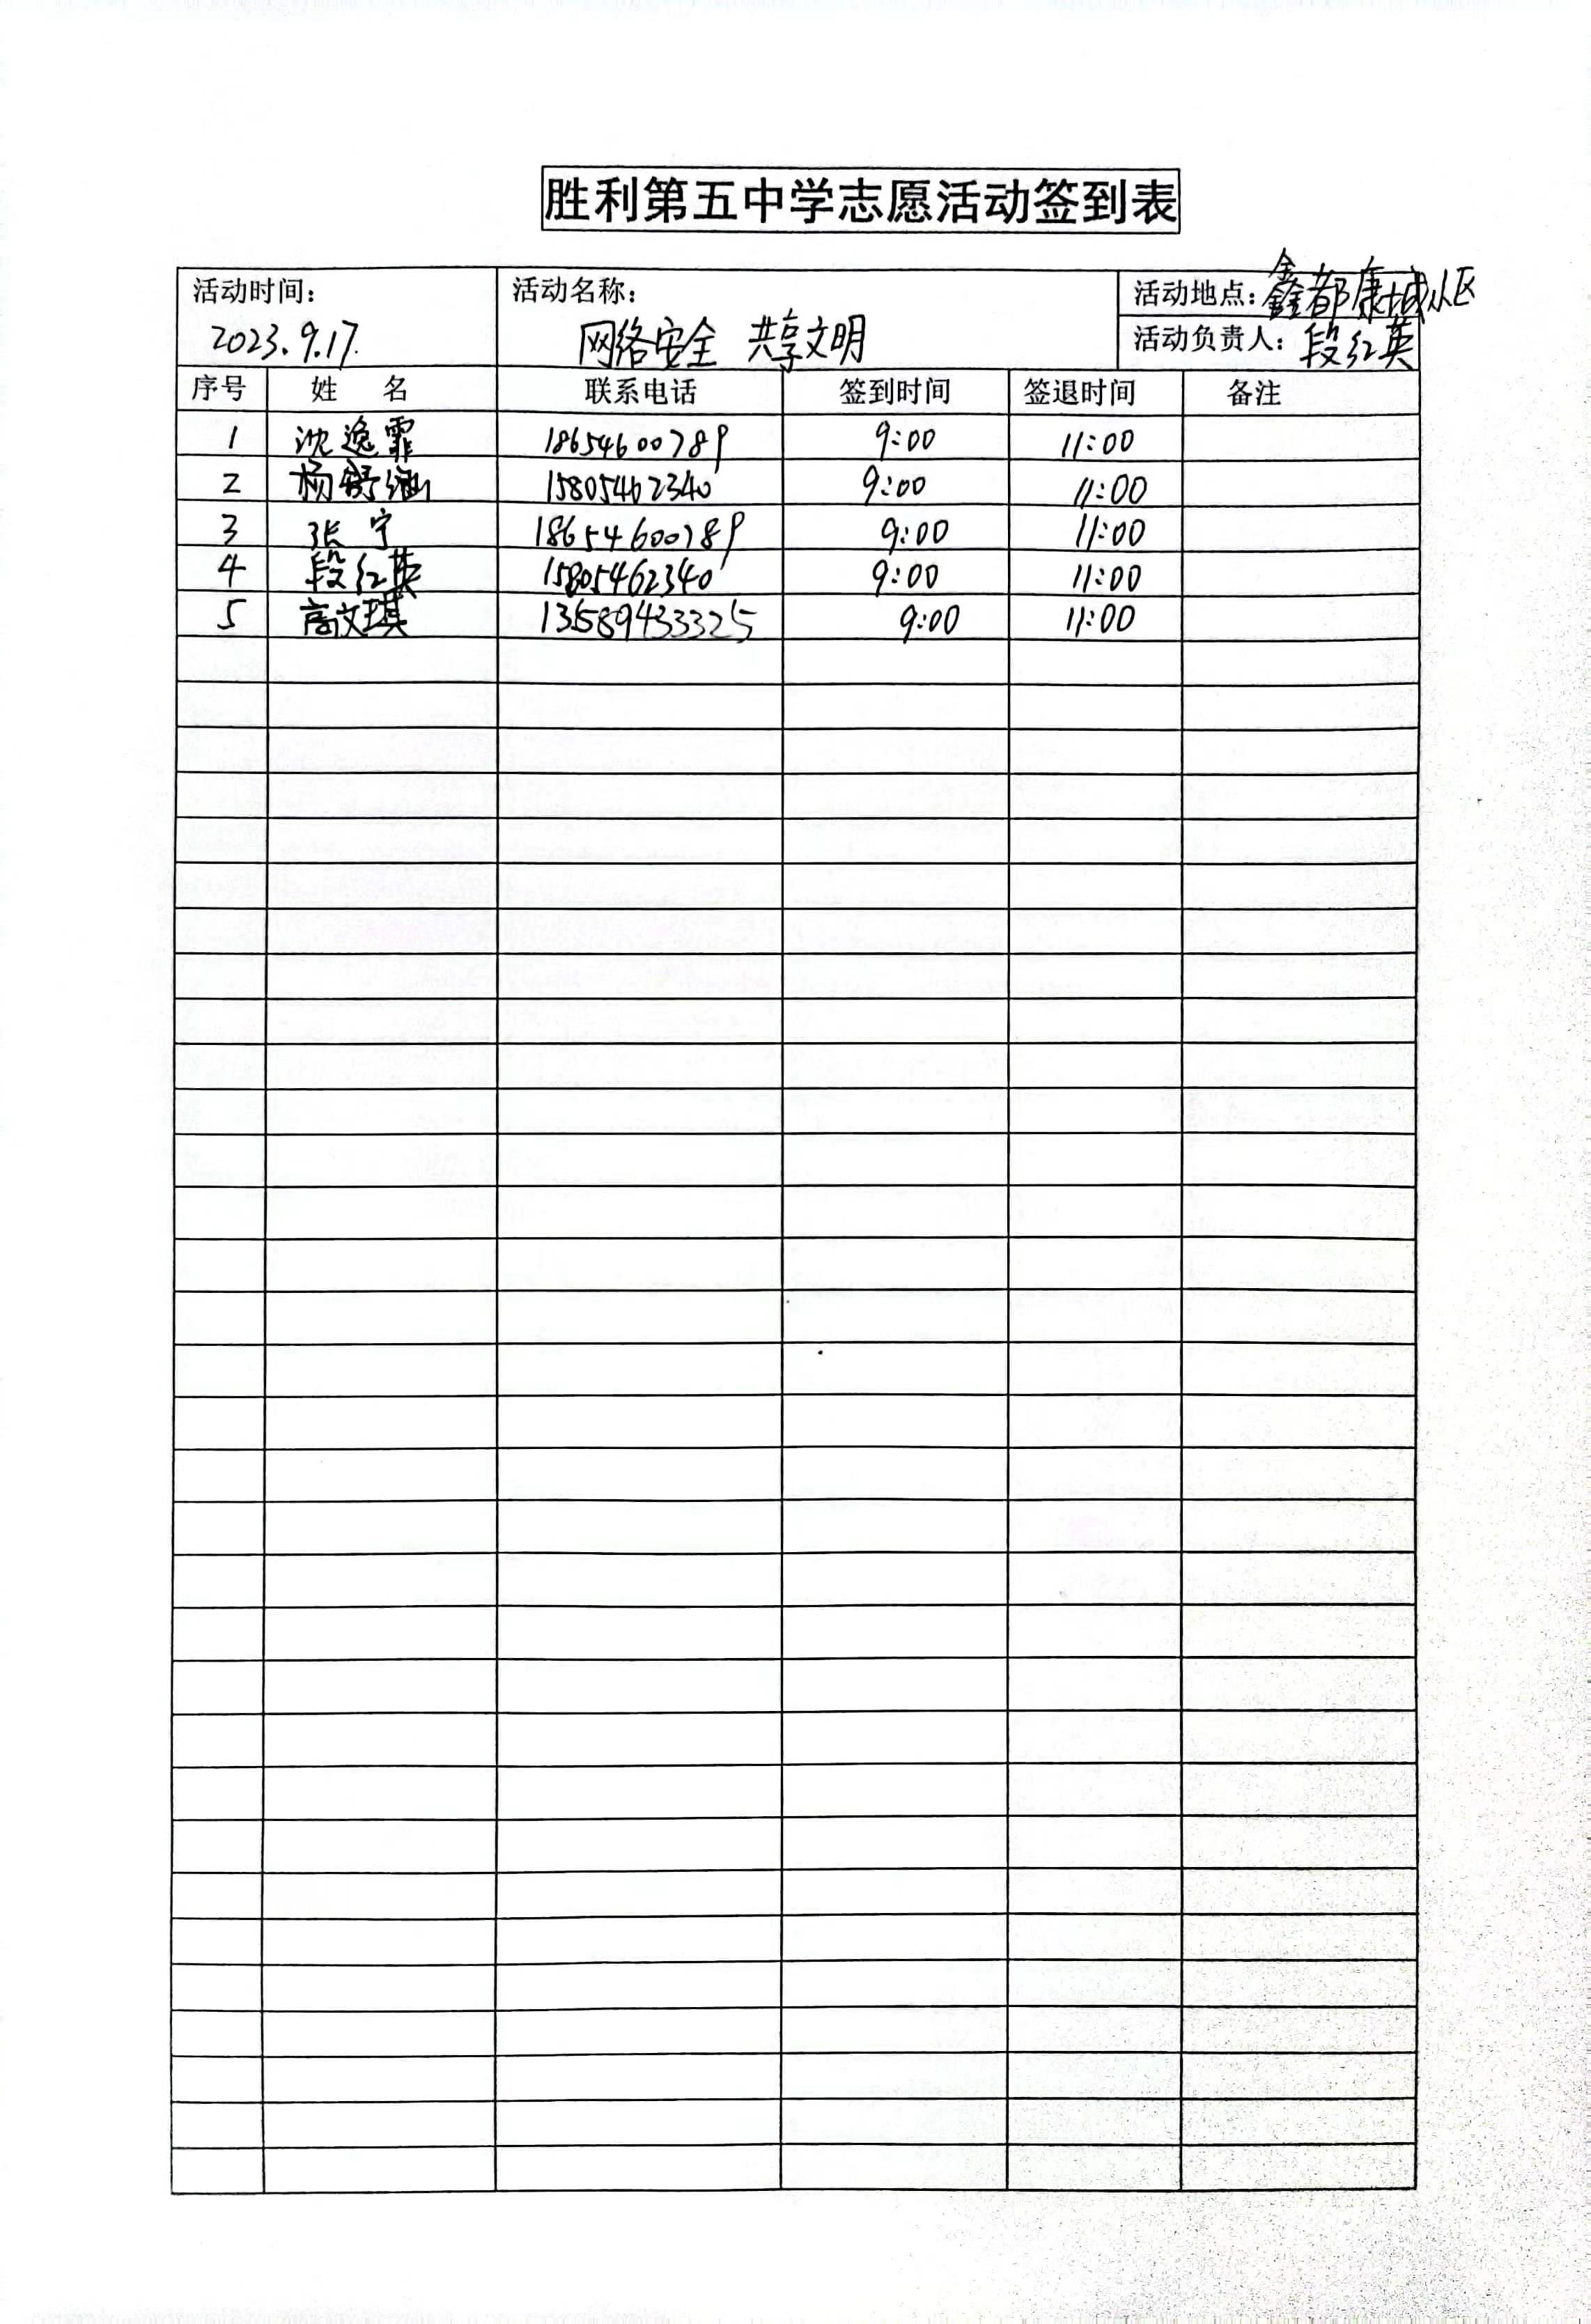 胜利第五中学志愿活动签到表
活动时间： 活动名称： 活动地点：鑫都康城小区
2023.9.17. 网络安全 共享文明 活动负责人：段红英
序号 姓 名 联系电话 签到时间 签退时间 备注
1 沈逸霏 18654600789 9:00 11:00
2 杨舒涵 15805462340 9:00 11:00
3 张宁 18654600789 9:00 11:00
4 段红英 15805462340 9:00 11:00
5 高文琪 13589433325 9:00 11:00